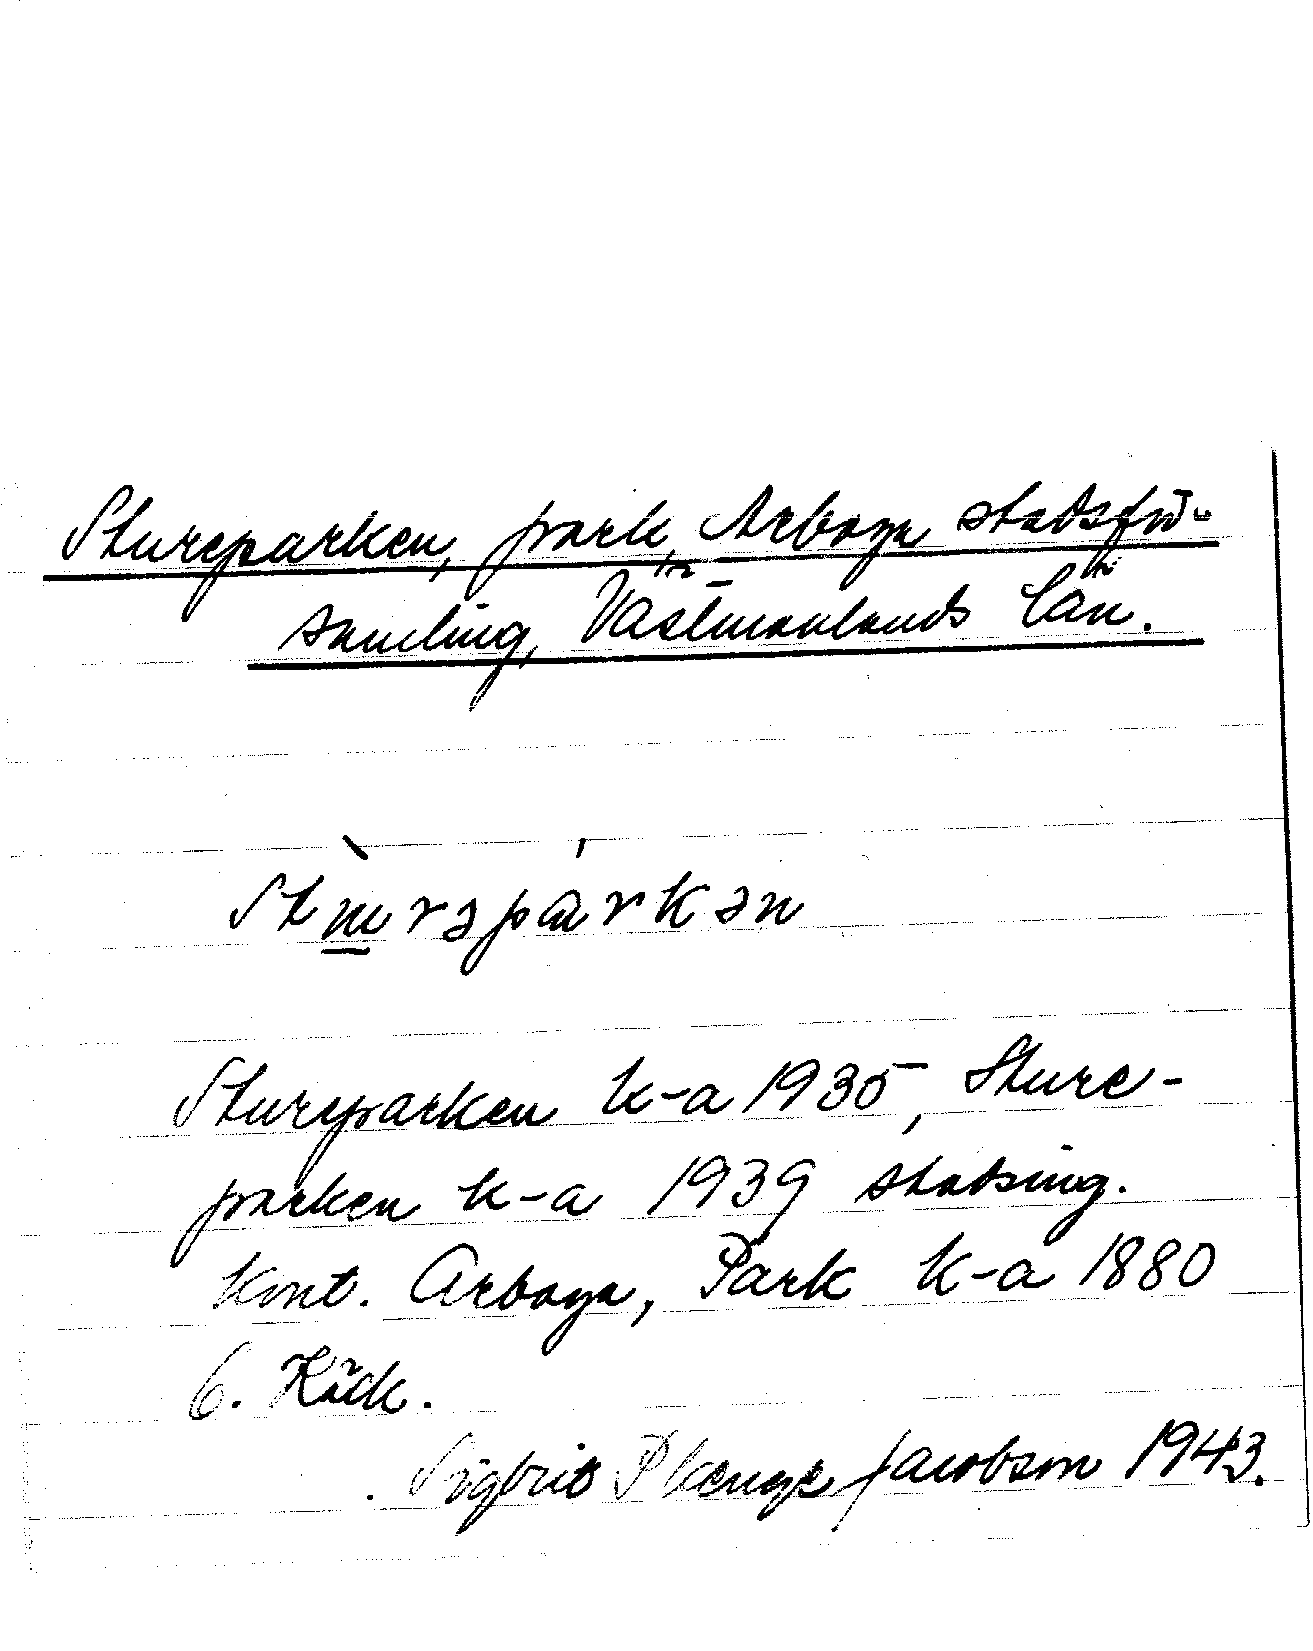 Stureparken, park, Arboga stadsför-
samling, Västmanlands län.
Stureparken k-a 1935, Sture-
parken k-a 1939 stadsing.
kont. Arboga, Park k-a 1880
6. Käck.
Sigbrit Plænge Jacobson 1943.